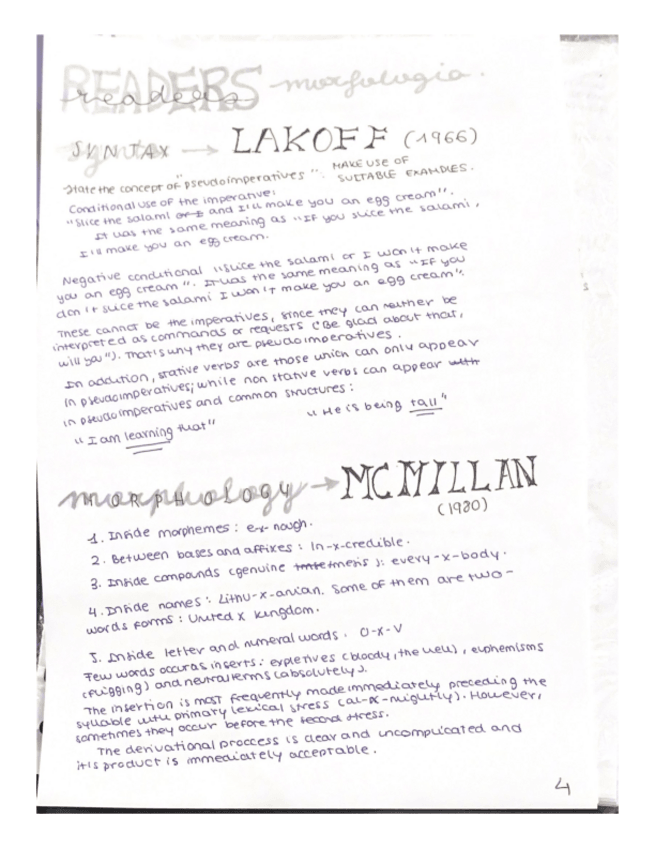 READERS morfologia.
readers
SYNTAX → LAKOFF (1966)
State the concept of "pseudoimperatives". MAKE USE OF
SUITABLE EXAMPLES.
Conditional use of the imperative:
"Slice the salami or I and I'll make you an egg cream".
It has the same meaning as "IF you slice the salami,
I'll make you an egg cream.
Negative conditional "Slice the salami or I won't make
you an egg cream". It has the same meaning as "IF you
don't slice the salami I won't make you an egg cream".
These cannot be the imperatives, since they can neither be
interpreted as commands or requests ("Be glad about that,
will ya"). That's why they are pseudoimperatives.
In addition, stative verbs are those which can only appear
in pseudoimperatives; while non stative verbs can appear with
in pseudoimperatives and common structures:
"I am learning that" "He is being tall"
MORPHOLOGY → MCMILLAN
(1980)
1. Inside morphemes: e-x-nough.
2. Between bases and affixes: In-x-credible.
3. Inside compounds (genuine ): every-x-body.
4. Inside names: Lithu-x-anian. Some of them are two-
words forms: United x Kingdom.
5. Inside letter and numeral words. O-x-V
Few words occur as inserts: expletives (bloody, the hell), euphemisms
(frigging) and neutral terms (absolutely).
The insertion is most frequently made immediately preceding the
syllable with primary lexical stress (al-x-mightly). However,
sometimes they occur before the second stress.
The derivational proccess is clear and uncomplicated and
it is product is immediately acceptable.
4